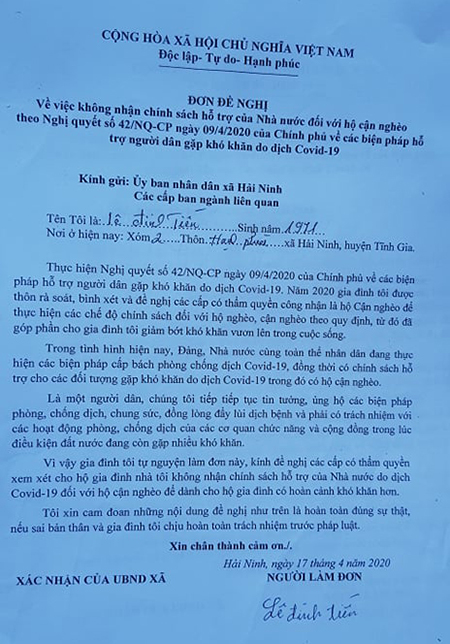 CỘNG HÒA XÃ HỘI CHỦ NGHĨA VIỆT NAM
Độc lập- Tự do- Hạnh phúc
ĐƠN ĐỀ NGHỊ
Về việc không nhận chính sách hỗ trợ của Nhà nước đối với hộ cận nghèo
theo Nghị quyết số 42/NQ-CP ngày 09/4/2020 của Chính phủ về các biện pháp hỗ
trợ người dân gặp khó khăn do dịch Covid-19
Kính gửi: Ủy ban nhân dân xã Hải Ninh
Các cấp ban ngành liên quan
Tên Tôi là: Lê đình Tiến Sinh năm 1971
Nơi ở hiện nay: Xóm 2 Thôn Hạnh phúc xã Hải Ninh, huyện Tĩnh Gia.
Thực hiện Nghị quyết số 42/NQ-CP ngày 09/4/2020 của Chính phủ về các biện
pháp hỗ trợ người dân gặp khó khăn do dịch Covid-19. Năm 2020 gia đình tôi được
thôn rà soát, bình xét và đề nghị các cấp có thẩm quyền công nhận là hộ Cận nghèo để
thực hiện các chế độ chính sách đối với hộ nghèo, cận nghèo theo quy định, từ đó đã
góp phần cho gia đình tôi giảm bớt khó khăn vươn lên trong cuộc sống.
Trong tình hình hiện nay, Đảng, Nhà nước cùng toàn thể nhân dân đang thực
hiện các biện pháp cấp bách phòng chống dịch Covid-19, đồng thời có chính sách hỗ
trợ cho các đối tượng gặp khó khăn do dịch Covid-19 trong đó có hộ cận nghèo.
Là một người dân, chúng tôi tiếp tiếp tục tin tưởng, ủng hộ các biện pháp
phòng, chống dịch, chung sức, đồng lòng đẩy lùi dịch bệnh và phải có trách nhiệm với
các hoạt động phòng, chống dịch của các cơ quan chức năng và cộng đồng trong lúc
điều kiện đất nước đang còn gặp nhiều khó khăn.
Vì vậy gia đình tôi tự nguyện làm đơn này, kính đề nghị các cấp có thẩm quyền
xem xét cho hộ gia đình nhà tôi không nhận chính sách hỗ trợ của Nhà nước do dịch
Covid-19 đối với hộ cận nghèo để dành cho hộ gia đình có hoàn cảnh khó khăn hơn.
Tôi xin cam đoan những nội dung đề nghị như trên là hoàn toàn đúng sự thật,
nếu sai bản thân và gia đình tôi chịu hoàn toàn trách nhiệm trước pháp luật.
Xin chân thành cảm ơn./.
Hải Ninh, ngày 17 tháng 4 năm 2020
XÁC NHẬN CỦA UBND XÃ NGƯỜI LÀM ĐƠN
Lê đình tiến